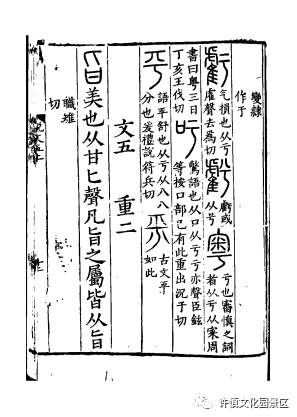 變隷
作于
虧
气損也从亏
雐聲去爲切
虧
虧或
从兮
粤
亏也審慎之詞
者从亏从宷周
書曰粤三日
丁亥王伐切
吁
驚語也从口从亏亏亦聲臣鉉
等按口部已有此重出況于切
平
語平舒也从亏从八八
分也爰禮說符兵切
平
古文平
如此
文五 重二
旨美也从甘匕聲凡旨之屬皆从旨
職雉
切
许慎文化园景区